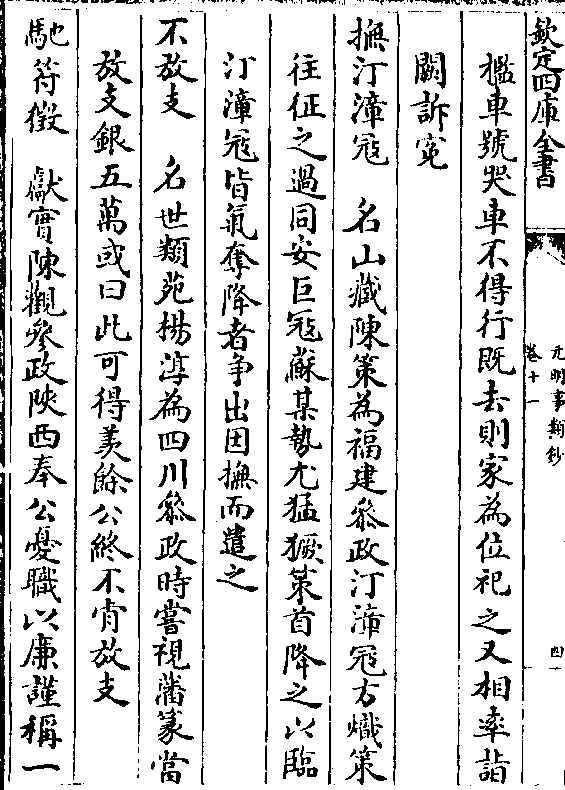 欽定四庫全書
元明事類鈔
卷十一
四
檻車號哭車不得行既去則家為位祀之又相率詣
闕訴寃
撫汀漳宼　名山藏陳策為福建叅政汀漳宼方熾策
往征之過同安巨宼蘇某勢尤猛獗策首降之以臨
汀漳宼皆氣奪降者争出因撫而遣之
不放支　名世類苑楊淳為四川叅政時嘗視藩篆當
放支銀五萬或曰此可得羡餘公終不肯放支
馳符徵　獻實陳觀叅政陜西奉公憂職以廉謹稱一